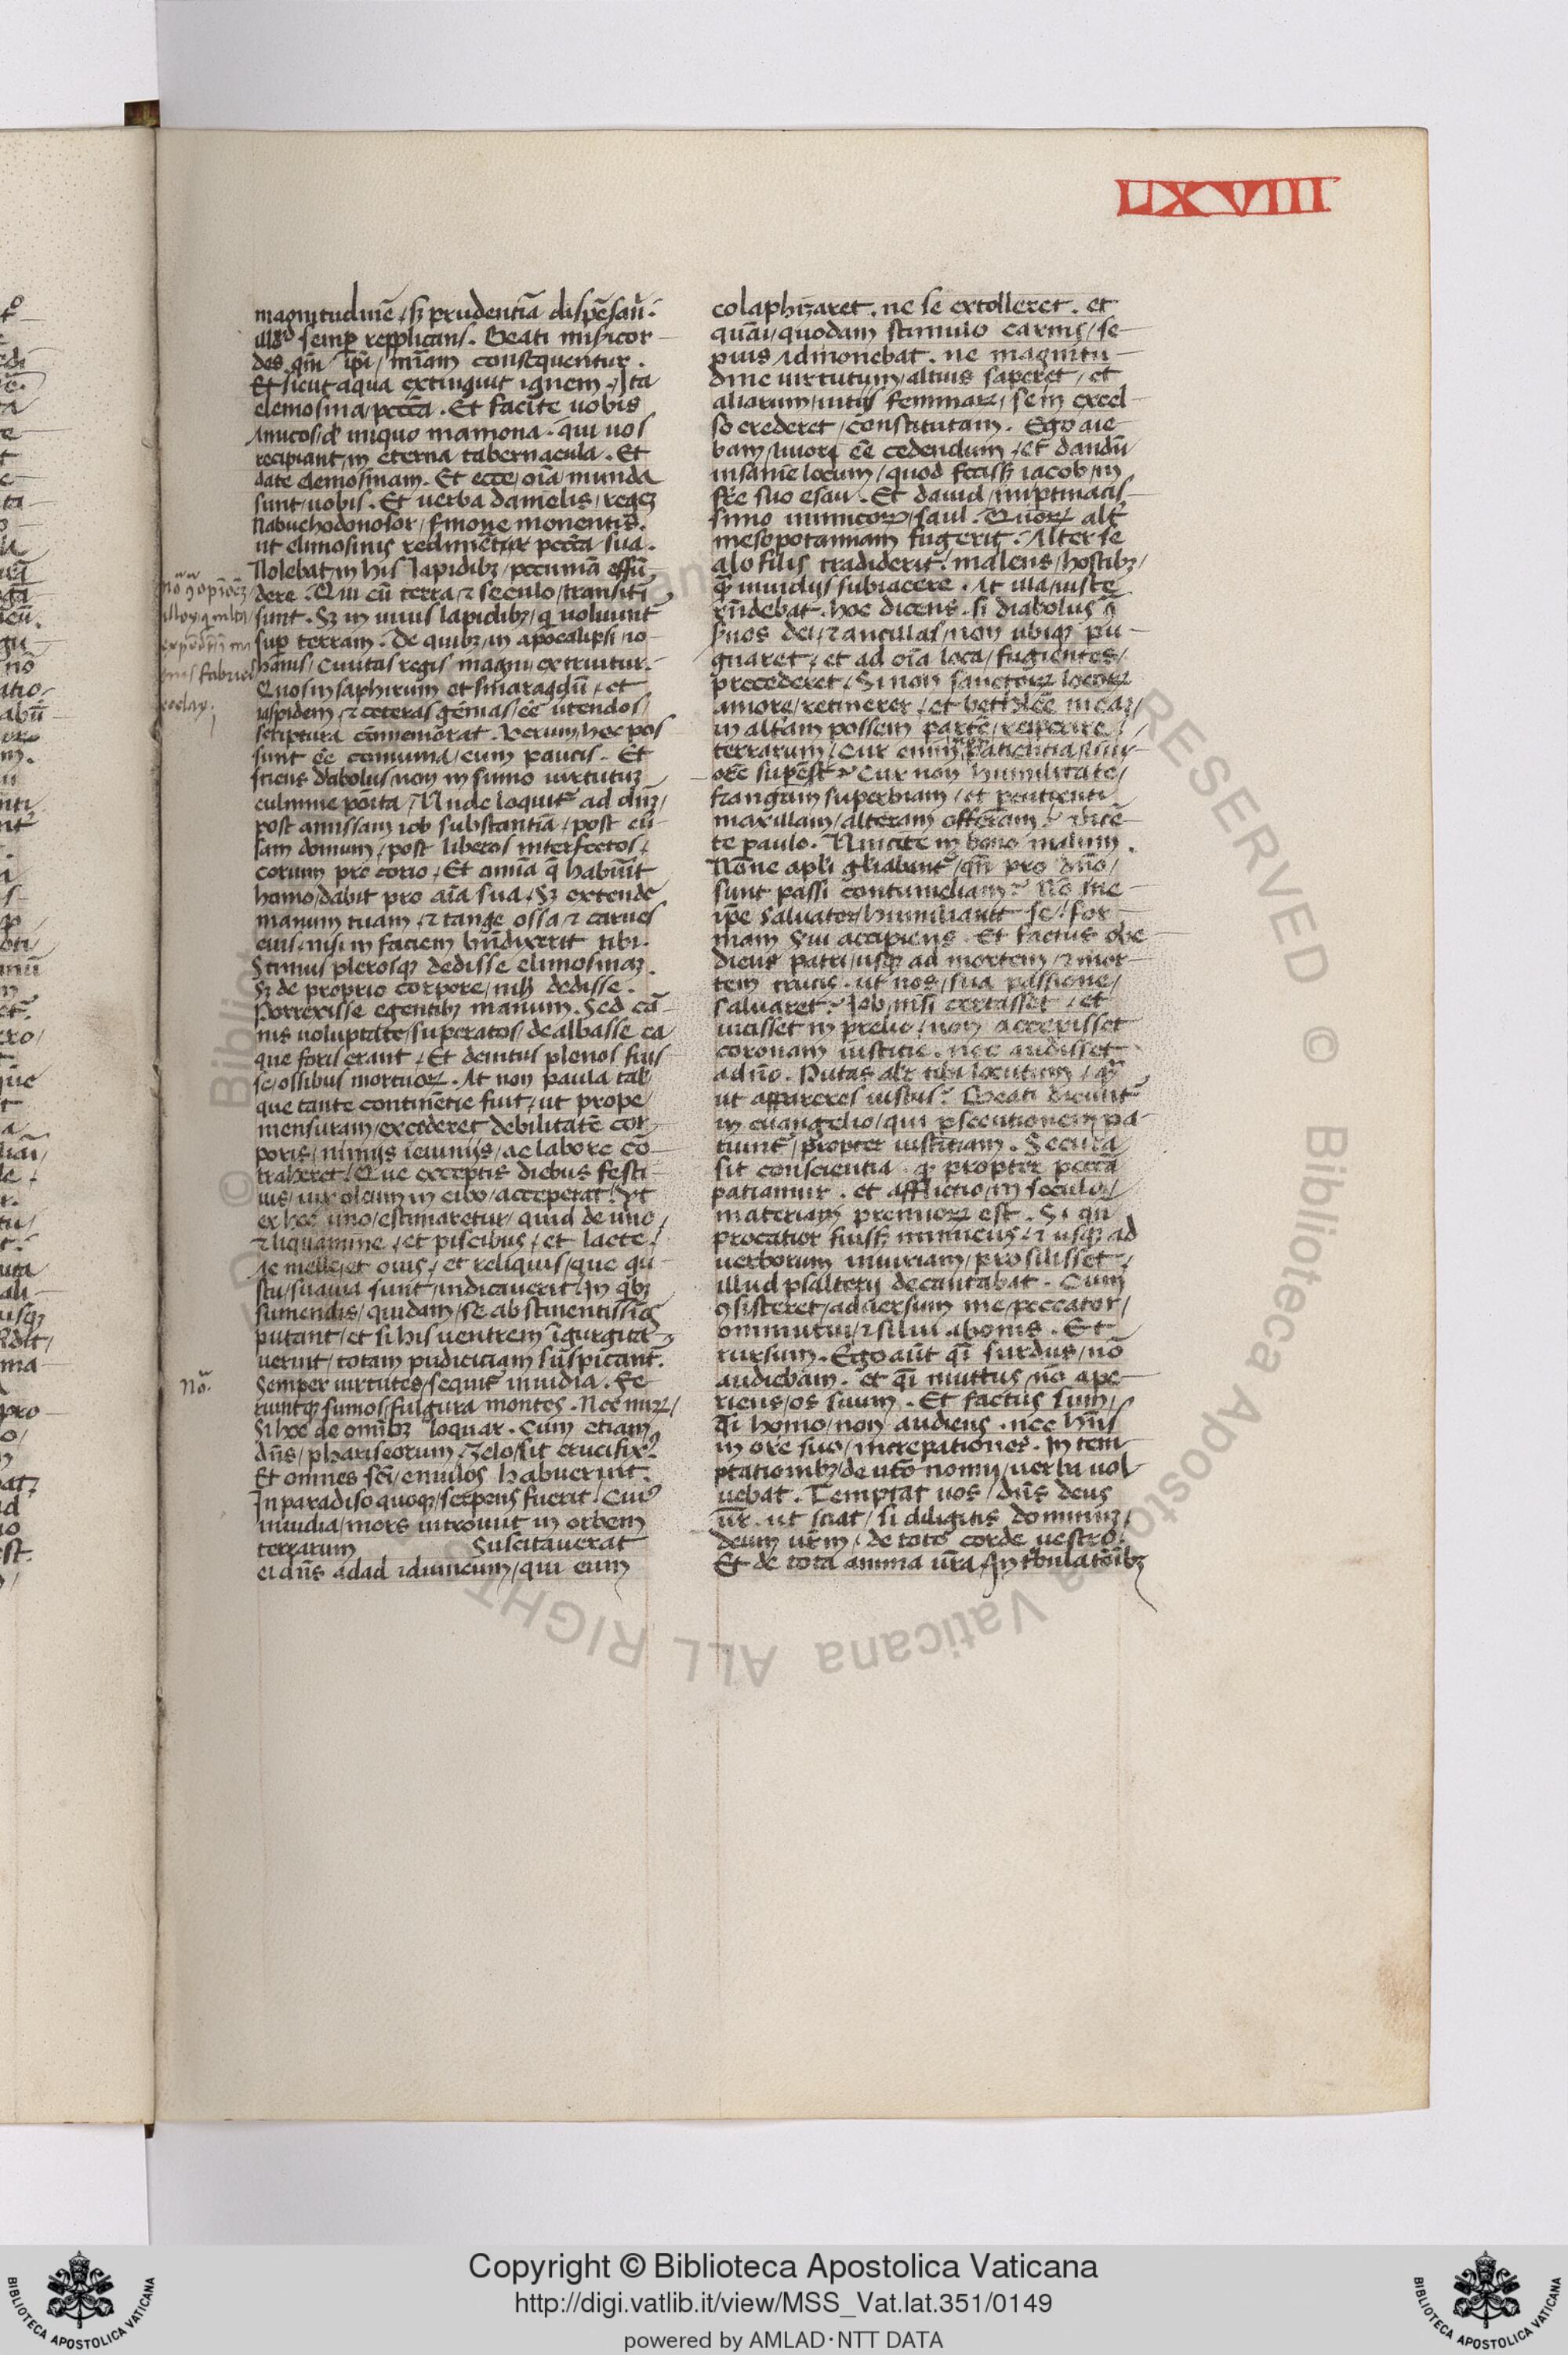 LXVIII
magnitudinē / sꝫ prudentiā dispēsaūi·
illud semp̱ repplicans. Beati misicor–
des qm̄ ip̄i / miāam consequentur.
Et sicut aqua extinguit ignem / Ita
elemosina / pccā. Et facite uobis
Amicos / de iniquo mamona · qui uos
recipiant / in eterna tabernacula. Et
date elemosinam. Et ecce / oīa / munda
sunt / uobis. Et uerba danielis / regeꝫ
Nabuchodonosor / smone monentis.
ut elimosinis redimētur pccā / sua.
Nolebat / in his lapidibꝫ / pecuniā effū
dere. Qui cū terra / ⁊ seculo / transitī
sunt. Sꝫ in uiuis lapidibꝫ / q̄ uoluunt̄
sup̱ terram. De quibꝫ / in apocalipsi io–
hanis / Ciuitas regis magni / extruitur.
Quos in saphirum et smaragdū / et
iaspidem / ⁊ ceteras gēmas / ēē utendos /
scriptura cōmemorat. Verum / hec pos
sunt ēē comunia / cum paucis. Et
sciens diabolus / non in sumo uirtutuꝫ
culmine pōita / Unde loquit̄ ad dn̄ꝫ /
post amissam iob substantiā / post eū
sam domum / post liberos interfectos /
corium pro corio / Et omīa q̄ habūit
homo / dabit pro aīa sua / Sꝫ extende
manum tuam / ⁊ tange ossa ⁊ carnes
eius · nisi in faciem bn̄dixerit tibi.
Scimus plerosqꝫ dedisse elimosinaꝫ.
Sꝫ de proprio corpore / nihꝫ dedisse.
Porrexisse egentibꝫ manum. Sed cā–
nis uoluptate / superatos / dealbasse ea
que foris erant / Et deintus plenos fuis
se / ossibus mortuoꝝ. At non paula tal̄
que tante continētie fuit / ut prope
mensuram / excederet debilitatē cor–
poris / nimijs ieiunijs / ac labore cō
traheret / Que exceptis diebus festi–
uis / uix oleum in cibo / acceperat / Vt
ex hoc uno / estimaretur / quid de uino /
⁊ liquamine / et piscibus / et lacte /
Ac melle / et ouis / et reliquis / que gu–
stu / suauia sunt / indicauerit / In qb̄ꝫ
sumendis / quidam / se abstinentissīos
putant / et si his uentrem īgurgita–
uerint / totam pudiciciam suspicant̄.
Semper uirtutes / sequit̄ inuidia. Fe–
riuntqꝫ sumos / fulgura montes. Nec miꝝ /
Si hoc de omībꝫ loquar. Cum etiam
dn̄s / phariseorum / zelo / sit crucifixꝰ
Et omnes sc̄i / emulos habuerint.
In paradiso quoqꝫ / serpens fuerit / Cuiꝰ
inuidia / mors introiuit in orbem
terrarum Suscitauerat
ei dn̄s adad idumeum / qui eum
Nō.
colaphizaret. ne se extolleret. et
quasi / quodam stimulo carnis / se–
pius admonebat. ne magnitu–
dine uirtutum / altius saperet / et
aliarum / uitijs feminaꝝ / se in excel–
so crederet / constitutam. Ego aie
bam / liuori ēē cedendum / et dandū
insanie locum / quod fecisꝫ iacob / in
fr̄e suo esau. Et dauid / in ptinacis–
simo inimicoꝝ / saul. Quoꝝ alt̄
mesopotamiam fugerit. Alter se
alofilis tradiderit / malens / hostibꝫ /
q̄ inuidijs subiacere. At illa / iuste
rn̄debat. hoc dicens. si diabolus ꝯ
suos dei / ⁊ ancillas / non ubiqꝫ pu–
gnaret / et ad oīa loca / fugientes /
precederet / Si non sanctoꝝ locoꝝ
amore / retinerer / et bethleē meaꝫ /
in aliam possem partē / reperire /
terrarum / Cur enim patientia / liu–
orē supēst / Cur non humilitate /
frangam superbiam / et percutienti
maxillam / alteram offeram / Dicē–
te paulo. Vincite in bono malum.
Nōne apl̄i gl̄iabant̄ / qn̄ pro dn̄o /
sunt passi contumeliam / Nō ne
ip̄e saluator / humiliauit se / for–
mam sui accipiens. Et factus obe
diens patri / usqꝫ ad mortem / ⁊ mor–
tem crucis. ut nos / sua passione /
saluaret / Iob / nisi certasset / et
uicisset in prelio / non accepisset
coronam iusticie. nec audisset
a dn̄o. Putas alr̄ tibi locutum / qꝫ
ut appareres iustus / Beati dicunt̄
in euangelio / qui psecutionem pa–
tiunt̄ / propter iusticiam. Secura
sit conscientia. qꝫ propter pccā
patiamur. et afflictio / in seculo /
materiam premioꝝ est. Si qn̄
procatior fuisꝫ inimicus / ⁊ usqꝫ ad
uerborum iniuriam / prosilisset /
illud psalterij decantabat. Cum
ꝯsisteret / aduersum me / peccator /
ommutui / ⁊ silui a bonis. Et
rursum. Ego aūt q̄i surdus / nō
audiebam. et q̄i muttus / nō ape–
riens / os suum. Et factus sum /
q̄i homo / non audiens. nec hn̄s
in ore suo / increpationes. In tem–
ptationibꝫ / deutō nomij / uerba uol–
uebat. Temptat uos / dn̄s deus
ūr. ut sciat / si diligitis dominuꝫ /
deum ur̄m / de toto corde uestro.
Et de tota anima ur̄a / In tbulatōibꝫ
Copyright © Biblioteca Apostolica Vaticana
http://digi.vatlib.it/view/MSS_Vat.lat.351/0149
powered by AMLAD·NTT DATA
BIBLIOTECA APOSTOLICA VATICANA
BIBLIOTECA APOSTOLICA VATICANA